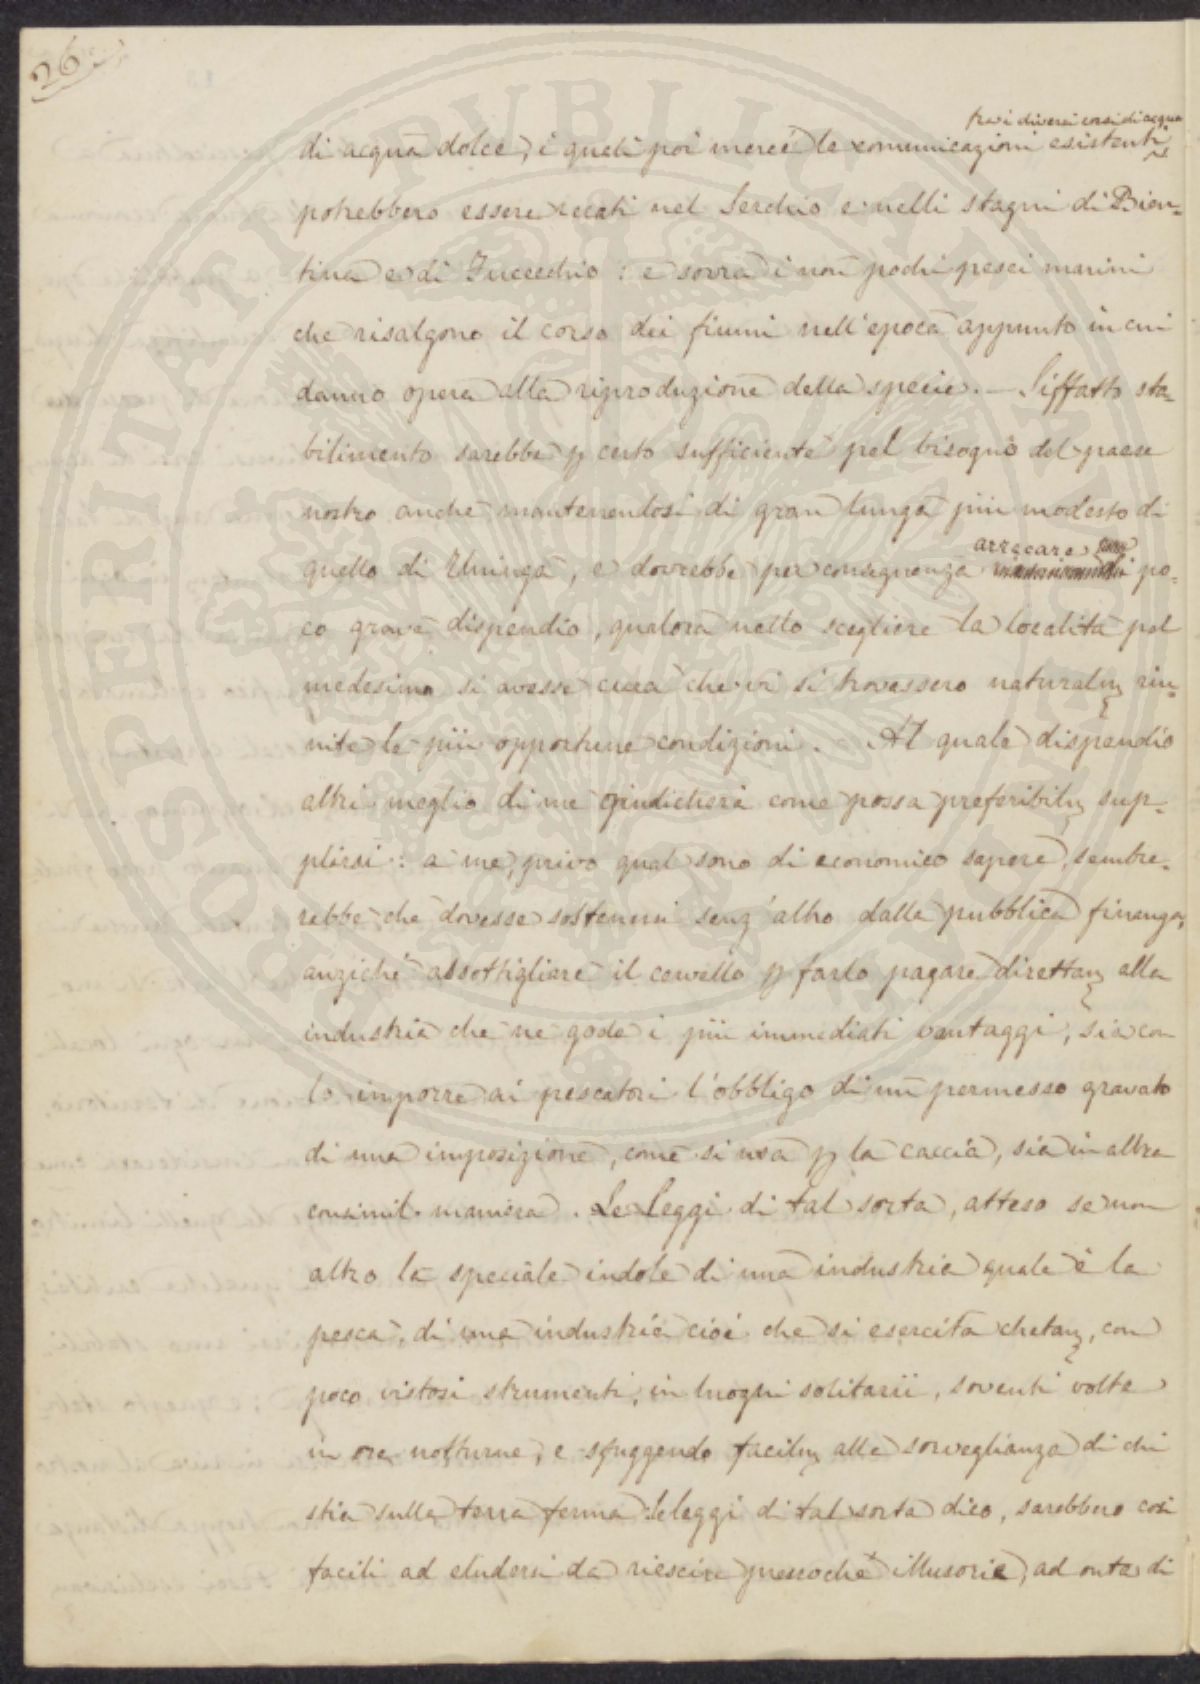 26.
fra i diversi corsi di acqua
di acqua dolce, i quali poi mercé le comunicazioni esistenti
potrebbero essere recati nel Serchio e nelli stagni di Bien-
tina e di Fucecchio: e sovra i non pochi pesci marini
che risalgono il corso dei fiumi nell'epoca appunto in cui
danno opera alla riproduzione della specie. — Siffatto sta-
bilimento sarebbe p certo sufficiente pel bisogno del paese
nostro anche mantenendosi di gran lunga più modesto di
arrecare
quello di Uninga, e dovrebbe per conseguenza po-
co grave dispendio, qualora nello scegliere la località pel
medesimo si avesse cura che vi si trovassero naturalm riu-
nite le più opportune condizioni. Al quale dispendio
altri meglio di me giudicherà come possa preferibilm sup-
plirsi: a me, privo qual sono di economico sapere, sembre-
rebbe che dovesse sostenersi senz'altro dalla pubblica finanza,
anziché assottigliare il cervello p farlo pagare direttam alla
industria che ne gode i più immediati vantaggi, sia con
lo imporre ai pescatori l'obbligo di un permesso gravato
di una imposizione, come si usa p la caccia, sia in altra
consimil maniera. Le leggi di tal sorta, atteso se non
altro la speciale indole di una industria quale è la
pesca, di una industria cioè che si esercita chetam, con
poco vistosi strumenti, in luoghi solitarii, soventi volte
in ore notturne, e sfuggendo facilm alla sorveglianza di chi
stia sulla terra ferma: le leggi di tal sorta dico, sarebbero così
facili ad eludersi da riescire pressoché illusorie, ad onta di
PROSPERITATI PUBLICAE